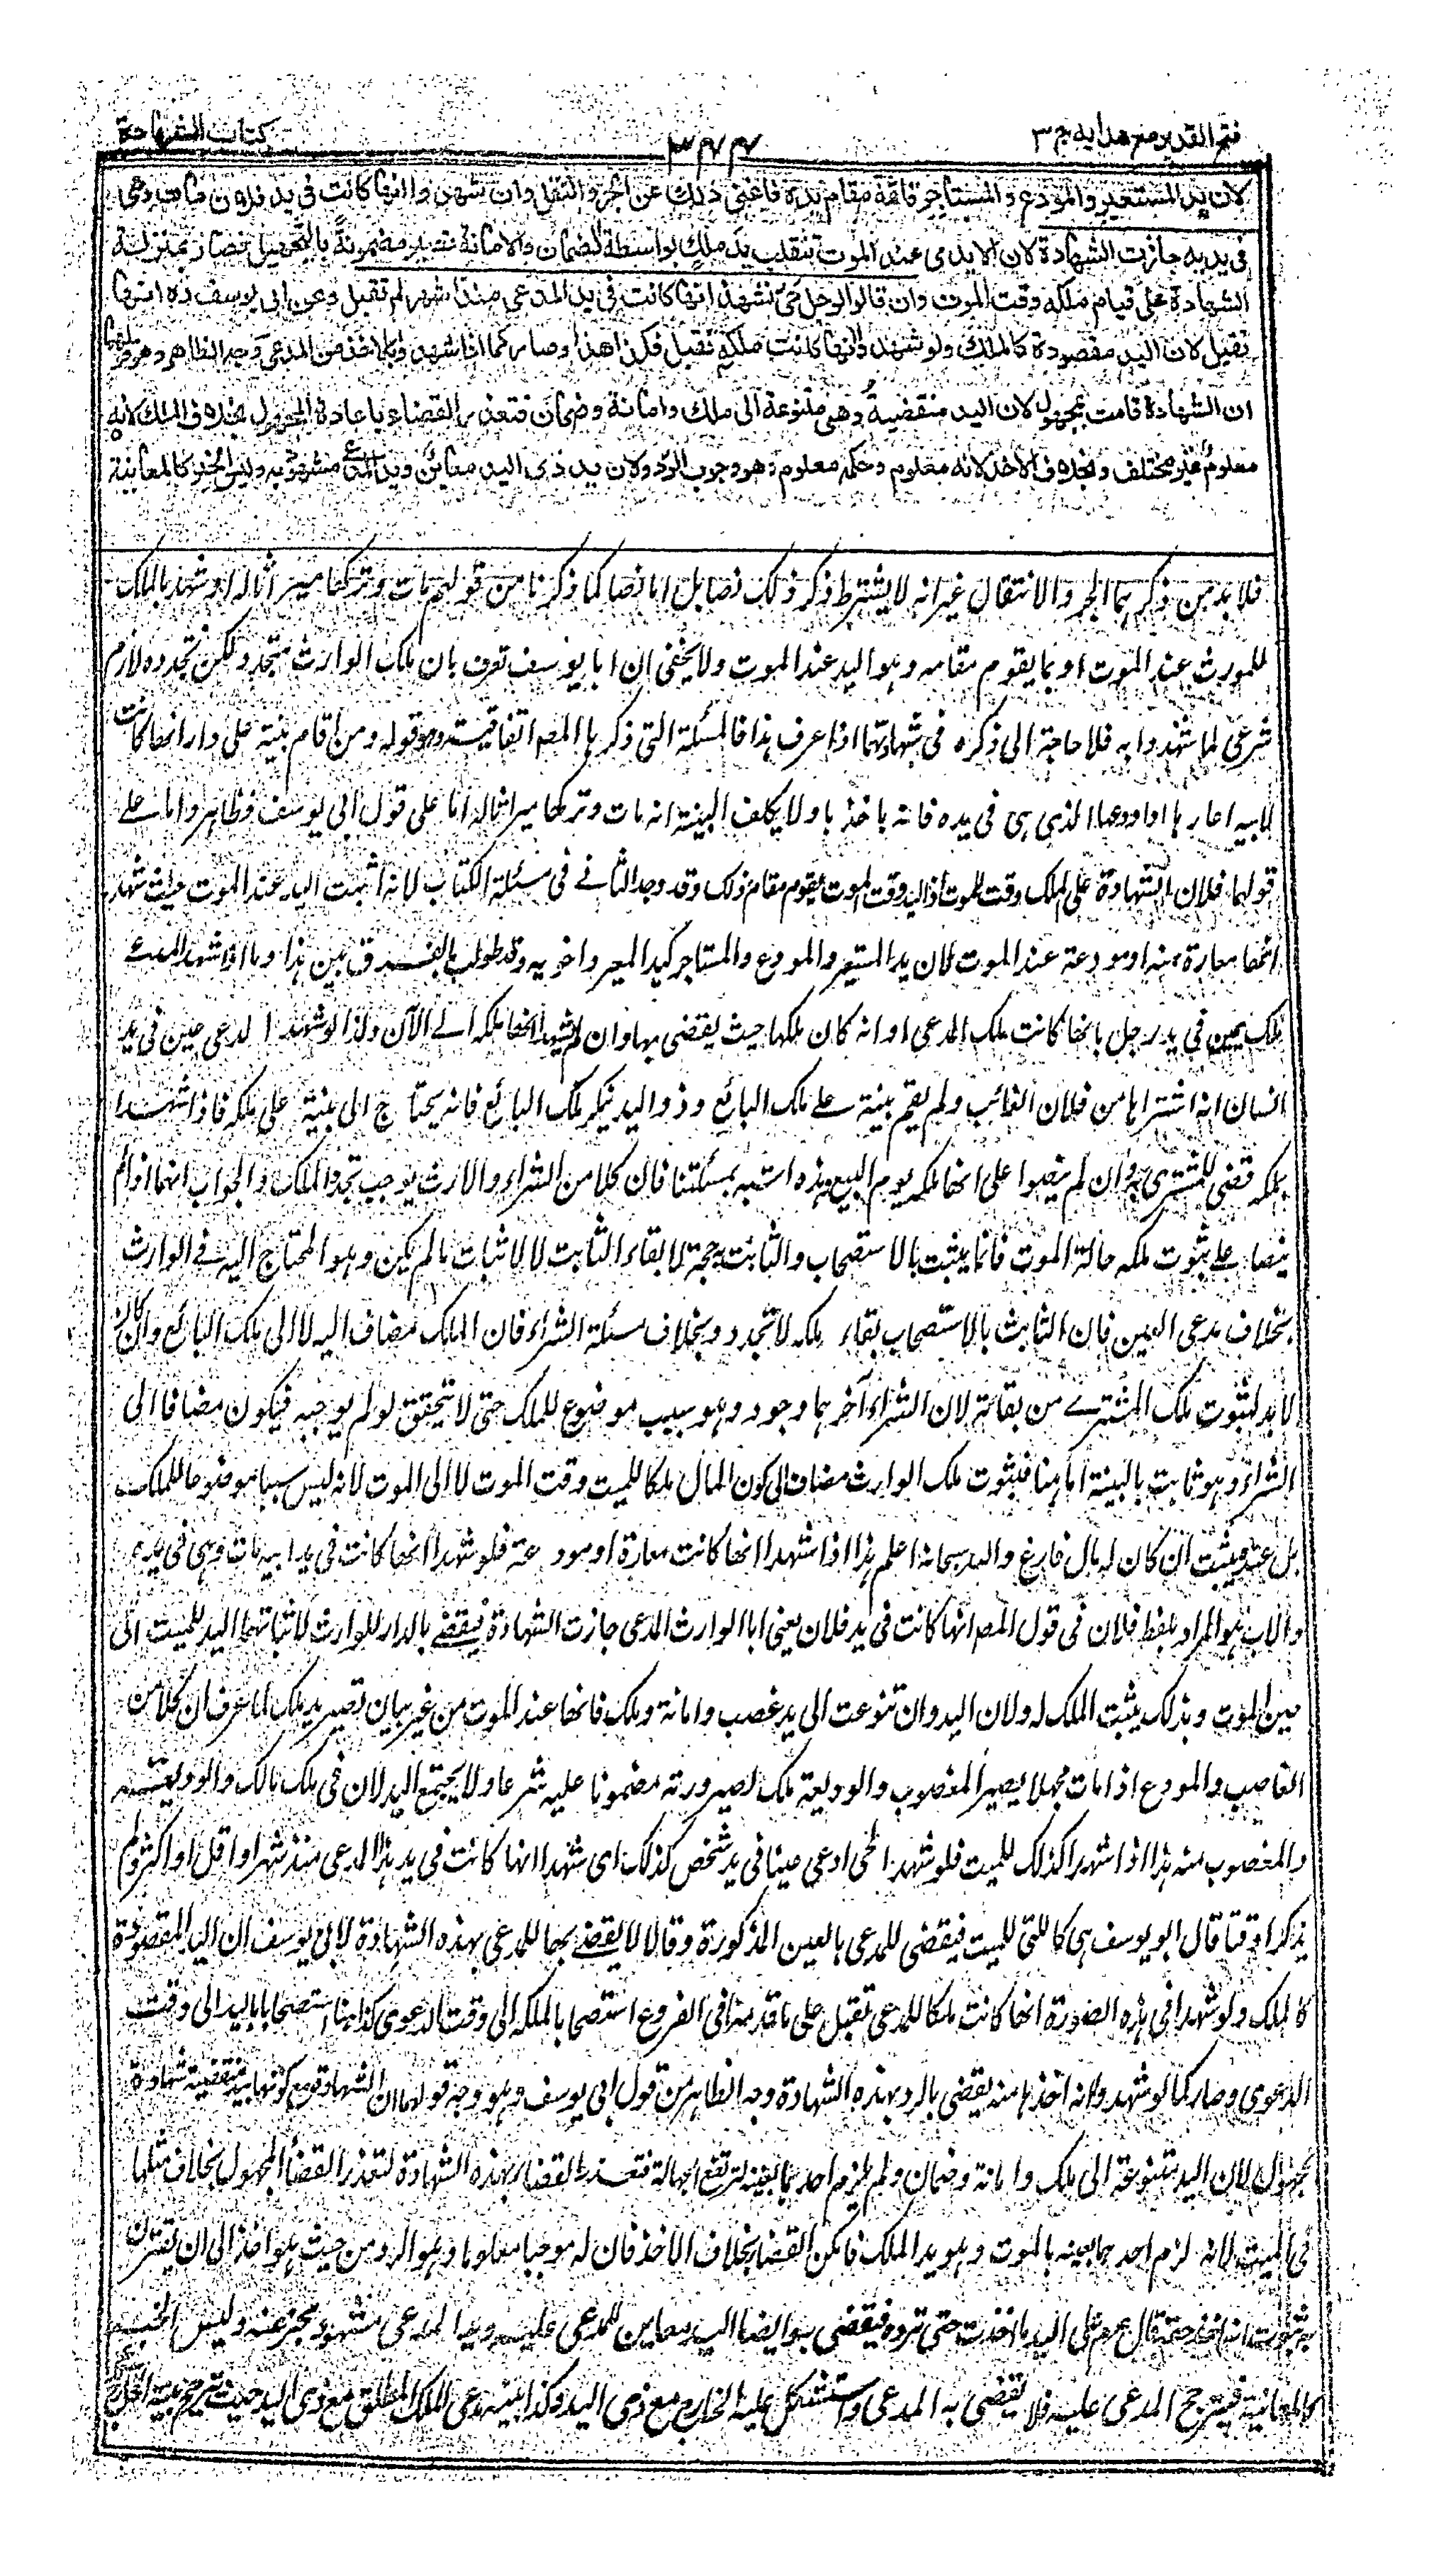 فتح القدير مع هدايه ج ٣
٣٧٤
كتاب الشهادة
لان يد المستعير والمودع والمستاجر قائمة مقام يده فاغنى ذلك عن الجر والنقل وان شهدوا انها كانت فى يد فلان مات وهى
فى يديه جازت الشهادة لان الايدى عند الموت تنقلب يد ملك بواسطة الضمان والامانة تصير مضمونة بالتجهيل فصار بمنزلة
الشهادة على قيام ملكه وقت الموت وان قالوا لرجل حى نشهد انها كانت فى يد المدعى منذ اشهر لم تقبل وعن ابى يوسف ره انها
تقبل لان اليد مقصودة كالملك ولو شهدوا انها كانت ملكه تقبل فكذا هذا وصار كما اذا شهدوا بالاخذ من المدعى وجه الظاهر وهو قولهما
ان الشهادة قامت بمجهول لان اليد منقضية وهى متنوعة الى ملك وامانة وضمان فتعذر القضاء باعادة المجهول بخلاف الملك لانه
معلوم غير مختلف وبخلاف الاخذ لانه معلوم وحكمه معلوم وهو وجوب الرد ولان يد ذى اليد معاين ويد المدعى مشهود به وليس الخبر كالمعاينة
فلا بد من ذكرهما الجر والانتقال غير انه لا يشترط ذكر ذلك نصا بل اما نصا كما ذكرنا من قولهم مات وتركها ميراثا له او شهد بالملك
للمورث عند الموت او بما يقوم مقامه وهو اليد عند الموت ولا يخفى ان ابا يوسف تعرف بان ملك الوارث متجدد ولكن تجدده لازم
شرعى لما شهدوا به فلا حاجة الى ذكره فى شهادتهما اذا عرف هذا فالمسئلة التى ذكرها المصـ اتفاقية وهو قوله ومن اقام بينة على دار انها كانت
لابيه اعارها او اودعها الذى هى فى يده فانه ياخذها ولا يكلف البينة انه مات وتركها ميراثا له اما على قول ابى يوسف فظاهر واما على
قولهما فلان الشهادة على الملك وقت الموت او اليد وقت الموت يقوم مقام ذلك وقد وجد الثانى فى مسئلة الكتاب لانه اثبت اليد عند الموت حيث شهد
انها معارة منه او مودعة عند الموت لان يد المستعير والمودع والمستاجر كيد المعير واخويه وقد طولب بالفرق بين هذا وما اذا شهد المدعى
ملك عين فى يد رجل بانها كانت ملك المدعى او انه كان ملكها حيث يقضى بها وان لم يشهدا انها ملكه الى الآن وكذا لو شهدا لمدعى عين فى يد
انسان انه اشتراها من فلان الغائب ولم يقم بينة على ملك البائع وذو اليد ينكر ملك البائع فانه يحتاج الى بينة على ملكه فاذا شهدا
بملكه قضى للمشترى به وان لم ينصوا على انها ملكه يوم البيع وهذه اشبه بمسئلتنا فان كلا من الشراء والارث يوجب تجدد الملك والجواب انهما اذا لم
ينصا على ثبوت ملكه حالة الموت فانما يثبت بالاستصحاب والثابت به حجة لابقاء الثابت لا لاثبات ما لم يكن وهو المحتاج اليه فى الوارث
بخلاف مدعى العين فان الثابت بالاستصحاب بقاء ملكه لا تجدده وبخلاف مسئلة الشراء فان الملك مضاف اليه لا الى ملك البائع وان كان
لابد لثبوت ملك المشترى من بقائه لان الشراء آخرهما وجودا وهو سبب موضوع للملك حتى لا يتحقق لو لم يوجبه فيكون مضافا الى
الشراء وهو ثابت بالبينة اما هنا فثبوت ملك الوارث مضاف الى كون المال ملكا للميت وقت الموت لا الى الموت لانه ليس سببا موضوعا للملك
بل عنده يثبت ان كان له مال فارغ والله سبحانه اعلم هذا اذا شهدا انها كانت معارة او مودعة فلو شهدا انها كانت فى يد ابيه مات وهى فى يده
والاب هو المراد بلفظ فلان فى قول المصـ انها كانت فى يد فلان يعنى ابا الوارث المدعى جازت الشهادة فيقضى بالدار للوارث لاثباتهما اليد للميت الى
حين الموت وبذلك يثبت الملك له ولان اليد وان تنوعت الى يد غصب وامانة وملك فانها عند الموت من غير بيان تصير يد ملك لما عرف ان كلا من
الغاصب والمودع اذا مات مجهلا يصير المغصوب والوديعة ملكه لصيرورته مضمونا عليه شرعا ولا يجتمع البدلان فى ملك مالك والوديعة
والمغصوب منه هذا اذا شهدا كذلك للميت فلو شهدا لحى ادعى عينا فى يد شخص كذلك اى شهدا انها كانت فى يد هذا المدعى منذ شهر او اقل او اكثر ولم
يذكرا وقتا قال ابو يوسف هى كالتى للميت فيقضى للمدعى بالعين المذكورة وقالا لا يقضى بها للمدعى بهذه الشهادة لابى يوسف ان اليد مقصودة
كالملك ولو شهدا فى هذه الصورة انها كانت ملكا للمدعى تقبل على ما قدمنا فى الفروع استصحابا لملكه الى وقت الدعوى كذا هنا استصحابا باليد الى وقت
الدعوى وصار كما لو شهدوا انه اخذها منه يقضى بالرد بهذه الشهادة وجه الظاهر من قول ابى يوسف وهو وجه قولهما ان الشهادة مع كونها بيد منقضية شهادة
بمجهول لان اليد متنوعة الى ملك وامانة وضمان ولم يلزم احدهما بعينه لترتفع الجهالة فتعذر القضاء بهذه الشهادة لتعذر القضاء المجهول بخلاف مثلها
فى الميت لانه لزم احدهما بعينه بالموت وهو يد الملك فامكن القضاء بخلاف الاخذ فان له موجبا معلوما وهو الرد من حيث هو اخذ الى ان يقترن
به ثبوت انه اخذ حقه قال صم على اليد ما اخذت حتى ترده فيقضى به وايضا اليد معاين للمدعى عليه ويد المدعى مشهود مخبر عنه وليس الخبر
كالمعاينة فيترجح المدعى عليه فلا يقضى به المدعى واستشكل عليه الخارج مع ذى اليد وكذا بينة مدعى الملك المطلق مع ذى اليد حيث ترجح بينة الخارج